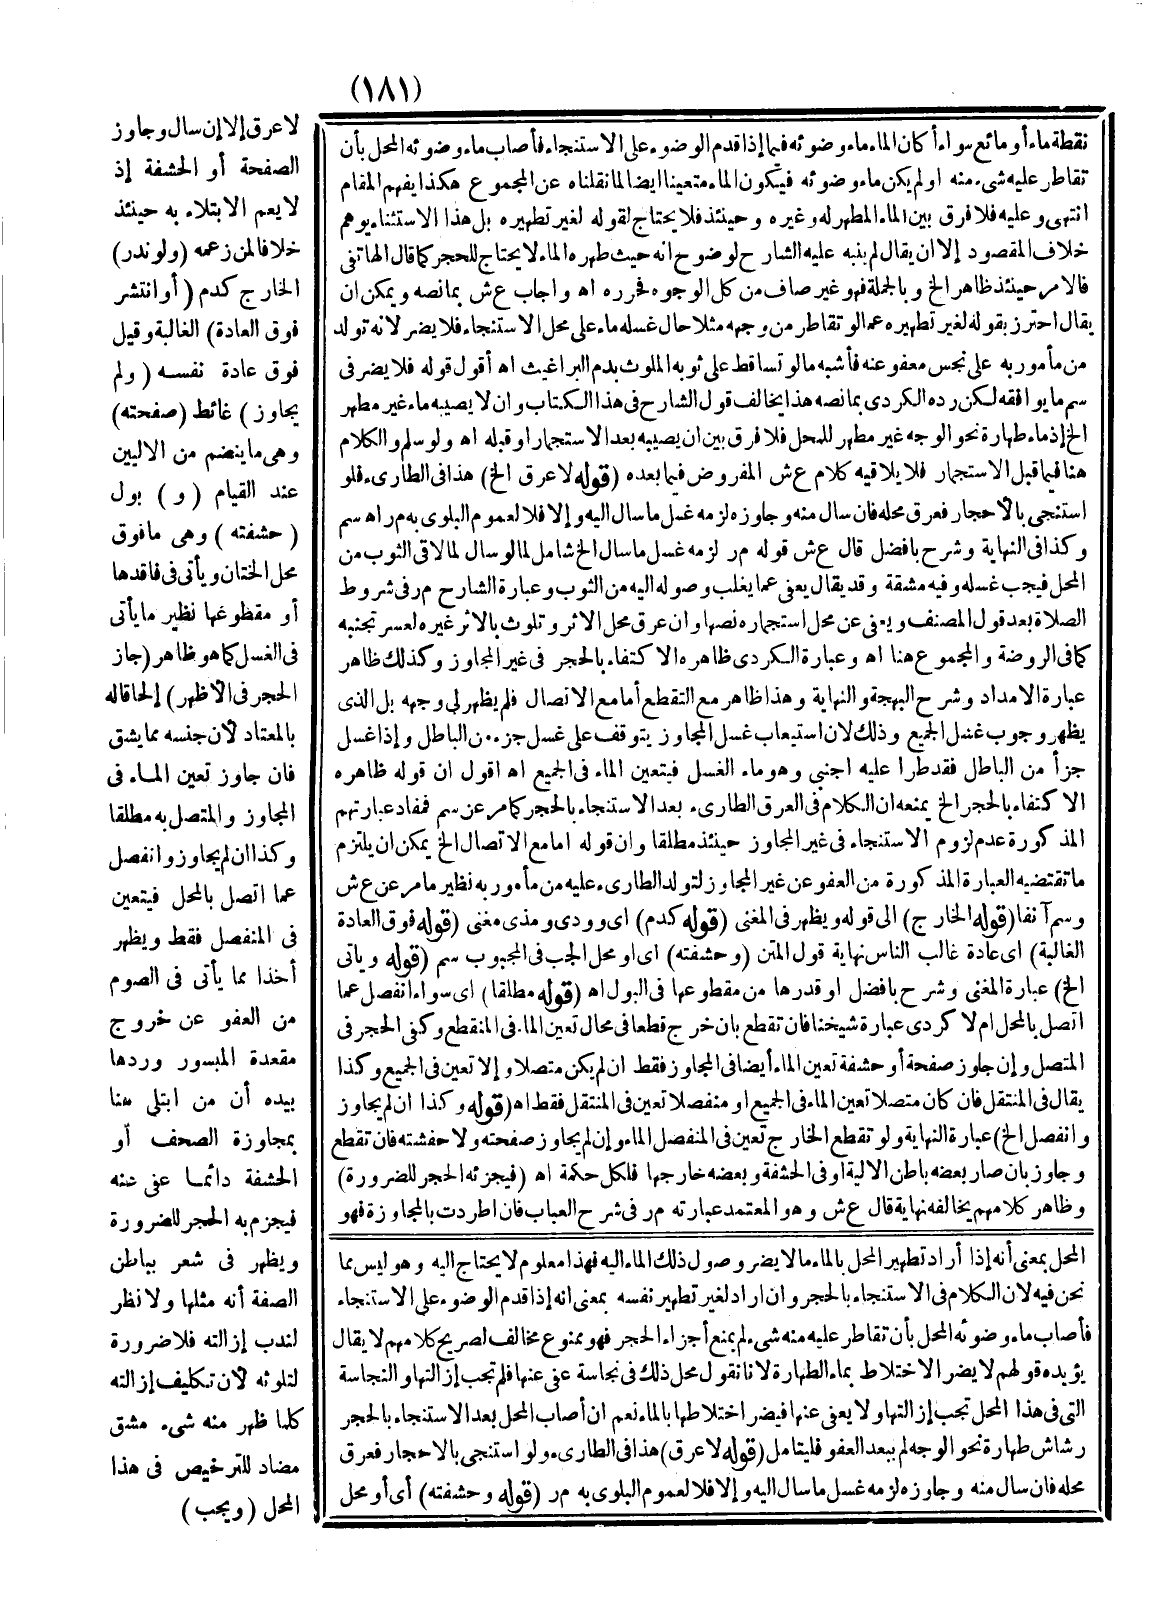 (١٨١)
لا عرق إلا إن سال وجاوز
الصفحة أو الحشفة إذ
لا يعم الابتلاء به حينئذ
خلافا لمن زعمه (ولو ندر)
الخارج كدم (أو انتشر
فوق العادة) الغالبة وقيل
فوق عادة نفسه (ولم
يجاوز) غائط (صفحته)
وهى ما ينضم من الاليين
عند القيام (و) بول
(حشفته) وهى مافوق
محل الختان ويأتى فى فاقدها
أو مقطوعها نظير ما يأتى
فى الغسل كما هو ظاهر (جاز
الحجر فى الأظهر) إلحاقا له
بالمعتاد لأن جنسه مما يشق
فان جاوز تعين المـاء فى
المجاوز والمتصل به مطلقا
وكذا ان لم يجاوز وانفصل
عما اتصل بالمحل فيتعين
فى المنفصل فقط ويظهر
أخذا مما يأتى فى الصوم
من العفو عن خروج
مقعدة المبسور وردها
بيده أن من ابتلى هنا
بمجاوزة الصحف أو
الحشفة دائمـا عفى عنه
فيجزم به الحجر للضرورة
ويظهر فى شعر بباطن
الصفة أنه مثلها ولا نظر
لندب إزالته فلا ضرورة
لتلوثه لأن تكليف إزالته
كلما ظهر منه شىء مشق
مضاد للترخيص فى هذا
المحل (ويجب)
نقطة ماء أو مائع سواء أكان الماء ماء وضوئه فيما إذا قدم الوضوء على الاستنجاء فأصاب ماء وضوئه المحل بأن
تقاطر عليه شىء منه او لم يكن ماء وضوئه فيكون الماء متعينا ايضا لما نقلناه عن المجموع هكذا يفهم المقام
انتهى وعليه فلا فرق بين الماء المطهر له وغيره وحينئذ فلا يحتاج لقوله لغير تطهيره بل هذا الاستثناء يوهم
خلاف المقصود إلا ان يقال لم ينبه عليه الشارح لوضوح انه حيث طهره الماء لا يحتاج للحجر كما قال الهاتفى
فالامر حينئذ ظاهر الخ وبالجملة فهو غير صاف من كل الوجوه فحرره اه واجاب عش بما نصه ويمكن ان
يقال احترز بقوله لغير تطهيره عما لو تقاطر من وجهه مثلا حال غسله ماء على محل الاستنجاء فلا يضر لانه تولد
من مأمور به على نجس معفو عنه فأشبه ما لو تساقط على ثوبه الملوث بدم البراغيث اه أقول قوله فلا يضر فى
سم ما يوافقه لكن رده الكردى بما نصه هذا يخالف قول الشارح فى هذا الكتاب وان لا يصيبه ماء غير مطهر
الخ إذ ماء طهارة نحو الوجه غير مطهر للمحل فلا فرق بين ان يصيبه بعد الاستجمار او قبله اه ولو سلم والكلام
هنا فيما قبل الاستجمار فلا يلاقيه كلام عش المفروض فيما بعده (قوله لا عرق الخ) هذا فى الطارىء فلو
استنجى بالأحجار فعرق محله فان سال منه وجاوزه لزمه غسل ما سال اليه وإلا فلا لعموم البلوى به مر اه سم
وكذا فى النهاية وشرح بافضل قال عش قوله مر لزمه غسل ما سال الخ شامل لما لو سال لما لاقى الثوب من
المحل فيجب غسله وفيه مشقة وقد يقال يعفى عما يغلب وصوله اليه من الثوب وعبارة الشارح مر فى شروط
الصلاة بعد قول المصنف ويعفى عن محل استجماره نصها وان عرق محل الاثر وتلوث بالاثر غيره لعسر تجنبه
كما فى الروضة والمجموع هنا اه وعبارة الكردى ظاهره الاكتفاء بالحجر فى غير المجاوز وكذلك ظاهر
عبارة الامداد وشرح البهجة والنهاية وهذا ظاهر مع التقطع أما مع الاتصال فلم يظهر لى وجهه بل الذى
يظهر وجوب غسل الجميع وذلك لان استيعاب غسل المجاوز يتوقف على غسل جزء من الباطل وإذا غسل
جزأ من الباطل فقد طرا عليه اجنبى وهو ماء الغسل فيتعين الماء فى الجميع اه اقول ان قوله ظاهره
الاكتفاء بالحجر الخ يمنعه ان الكلام فى العرق الطارىء بعد الاستنجاء بالحجر كما مر عن سم فمفاد عبارتهم
المذكورة عدم لزوم الاستنجاء فى غير المجاوز حينئذ مطلقا وان قوله اما مع الاتصال الخ يمكن ان يلتزم
ما تقتضيه العبارة المذكورة من العفو عن غير المجاوز لتولد الطارىء عليه من مأمور به نظير ما مر عن عش
وسم آنفا (قوله الخارج) الى قوله ويظهر فى المغنى (قوله كدم) اى وودى ومذى مغنى (قوله فوق العادة
الغالبة) اى عادة غالب الناس نهاية قول المتن (وحشفته) اى او محل الجب فى المجبوب سم (قوله وياتى
الخ) عبارة المغنى وشرح بافضل او قدرها من مقطوعها فى البول اه (قوله مطلقا) اى سواء انفصل عما
اتصل بالمحل ام لا كردى عبارة شيخنا فان تقطع بان خرج قطعا فى محال تعين الماء فى المنقطع وكفى الحجر فى
المتصل وإن جاوز صفحة أو حشفة تعين الماء أيضا فى المجاوز فقط ان لم يكن متصلا وإلا تعين فى الجميع وكذا
يقال فى المنتقل فان كان متصلا تعين الماء فى الجميع او منفصلا تعين فى المنتقل فقط اه (قوله وكذا ان لم يجاوز
وانفصل الخ) عبارة النهاية ولو تقطع الخارج تعين فى المنفصل الماء وإن لم يجاوز صفحته ولا حفشته فان تقطع
وجاوز بان صار بعضه باطن الالية او فى الحشفة وبعضه خارجها فلكل حكمة اه (فيجزئه الحجر للضرورة)
وظاهر كلامهم يخالفه نهاية قال عش وهو المعتمد عبارته مر فى شرح العباب فان اطردت بالمجاوزة فهو
المحل بمعنى أنه إذا أراد تطهير المحل بالماء ما لا يضر وصول ذلك الماء اليه فهذا معلوم لا يحتاج اليه وهو ليس مما
نحن فيه لان الكلام فى الاستنجاء بالحجر وان اراد لغير تطهير نفسه بمعنى انه إذا قدم الوضوء على الاستنجاء
فأصاب ماء وضوئه المحل بأن تقاطر عليه منه شىء لم يمنع أجزاء الحجر فهو ممنوع مخالف لصريح كلامهم لا يقال
يؤيده قولهم لا يضر الاختلاط بماء الطهارة لانا نقول محل ذلك فى نجاسة عفى عنها فلم تجب إزالتها والنجاسة
التى فى هذا المحل تجب إزالتها ولا يعفى عنها فيضر اختلاطها بالماء نعم ان أصاب المحل بعد الاستنجاء بالحجر
رشاش طهارة نحو الوجه لم يبعد العفو فليتامل (قوله لا عرق) هذا فى الطارىء ولو استنجى بالاحجار فعرق
محله فان سال منه وجاوزه لزمه غسل ما سال اليه وإلا فلا لعموم البلوى به مر (قوله وحشفته) أى أو محل